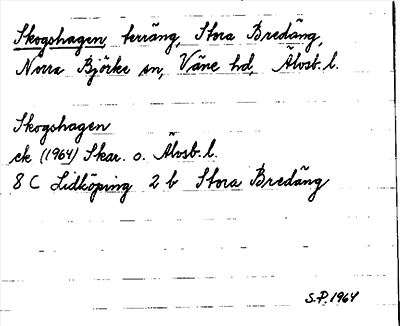 Skogshagen, terräng, Stora Bredäng,
Norra Björke sn, Väne hd, Älvsb. l.
Skogshagen
ek (1964) Skar. o. Älvsb. l.
8 C Lidköping 2 b Stora Bredäng
S.P. 1964